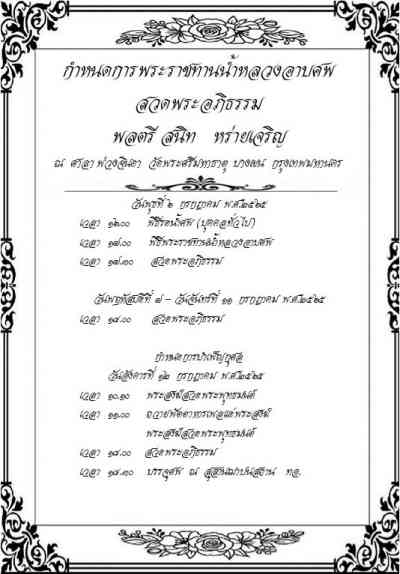 กำหนดการพระราชทานน้ำหลวงอาบศพ
สวดพระอภิธรรม
พลตรี สนิท หร่ายเจริญ
ณ ศาลา พ่วงจินดา วัดพระศรีมหาธาตุ บางเขน กรุงเทพมหานคร
วันพุธที่ ๖ กรกฎาคม พ.ศ.๒๕๖๕
เวลา ๑๖.๐๐ พิธีรดน้ำศพ (บุคคลทั่วไป)
เวลา ๑๗.๐๐ พิธีพระราชทานน้ำหลวงอาบศพ
เวลา ๑๘.๐๐ สวดพระอภิธรรม
วันพฤหัสบดีที่ ๗ - วันจันทร์ที่ ๑๑ กรกฎาคม พ.ศ.๒๕๖๕
เวลา ๑๘.๐๐ สวดพระอภิธรรม
กำหนดการบำเพ็ญกุศล
วันอังคารที่ ๑๒ กรกฎาคม พ.ศ.๒๕๖๕
เวลา ๑๐.๑๐ พระสงฆ์สวดพระพุทธมนต์
เวลา ๑๑.๐๐ ถวายภัตตาหารเพลแด่พระสงฆ์
พระสงฆ์สวดพระพุทธมนต์
เวลา ๑๘.๐๐ สวดพระอภิธรรม
เวลา บรรจุศพ ณ สุสานฌาปนสถาน ทอ.